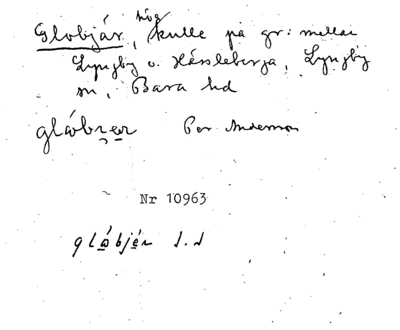 Globjär, hög kulle på gr: mellan
Lyngby o. Hässleberga, Lyngby
sn, Bara hd
glåbrer Per Andersson
Nr 10963
glåbjér s.d